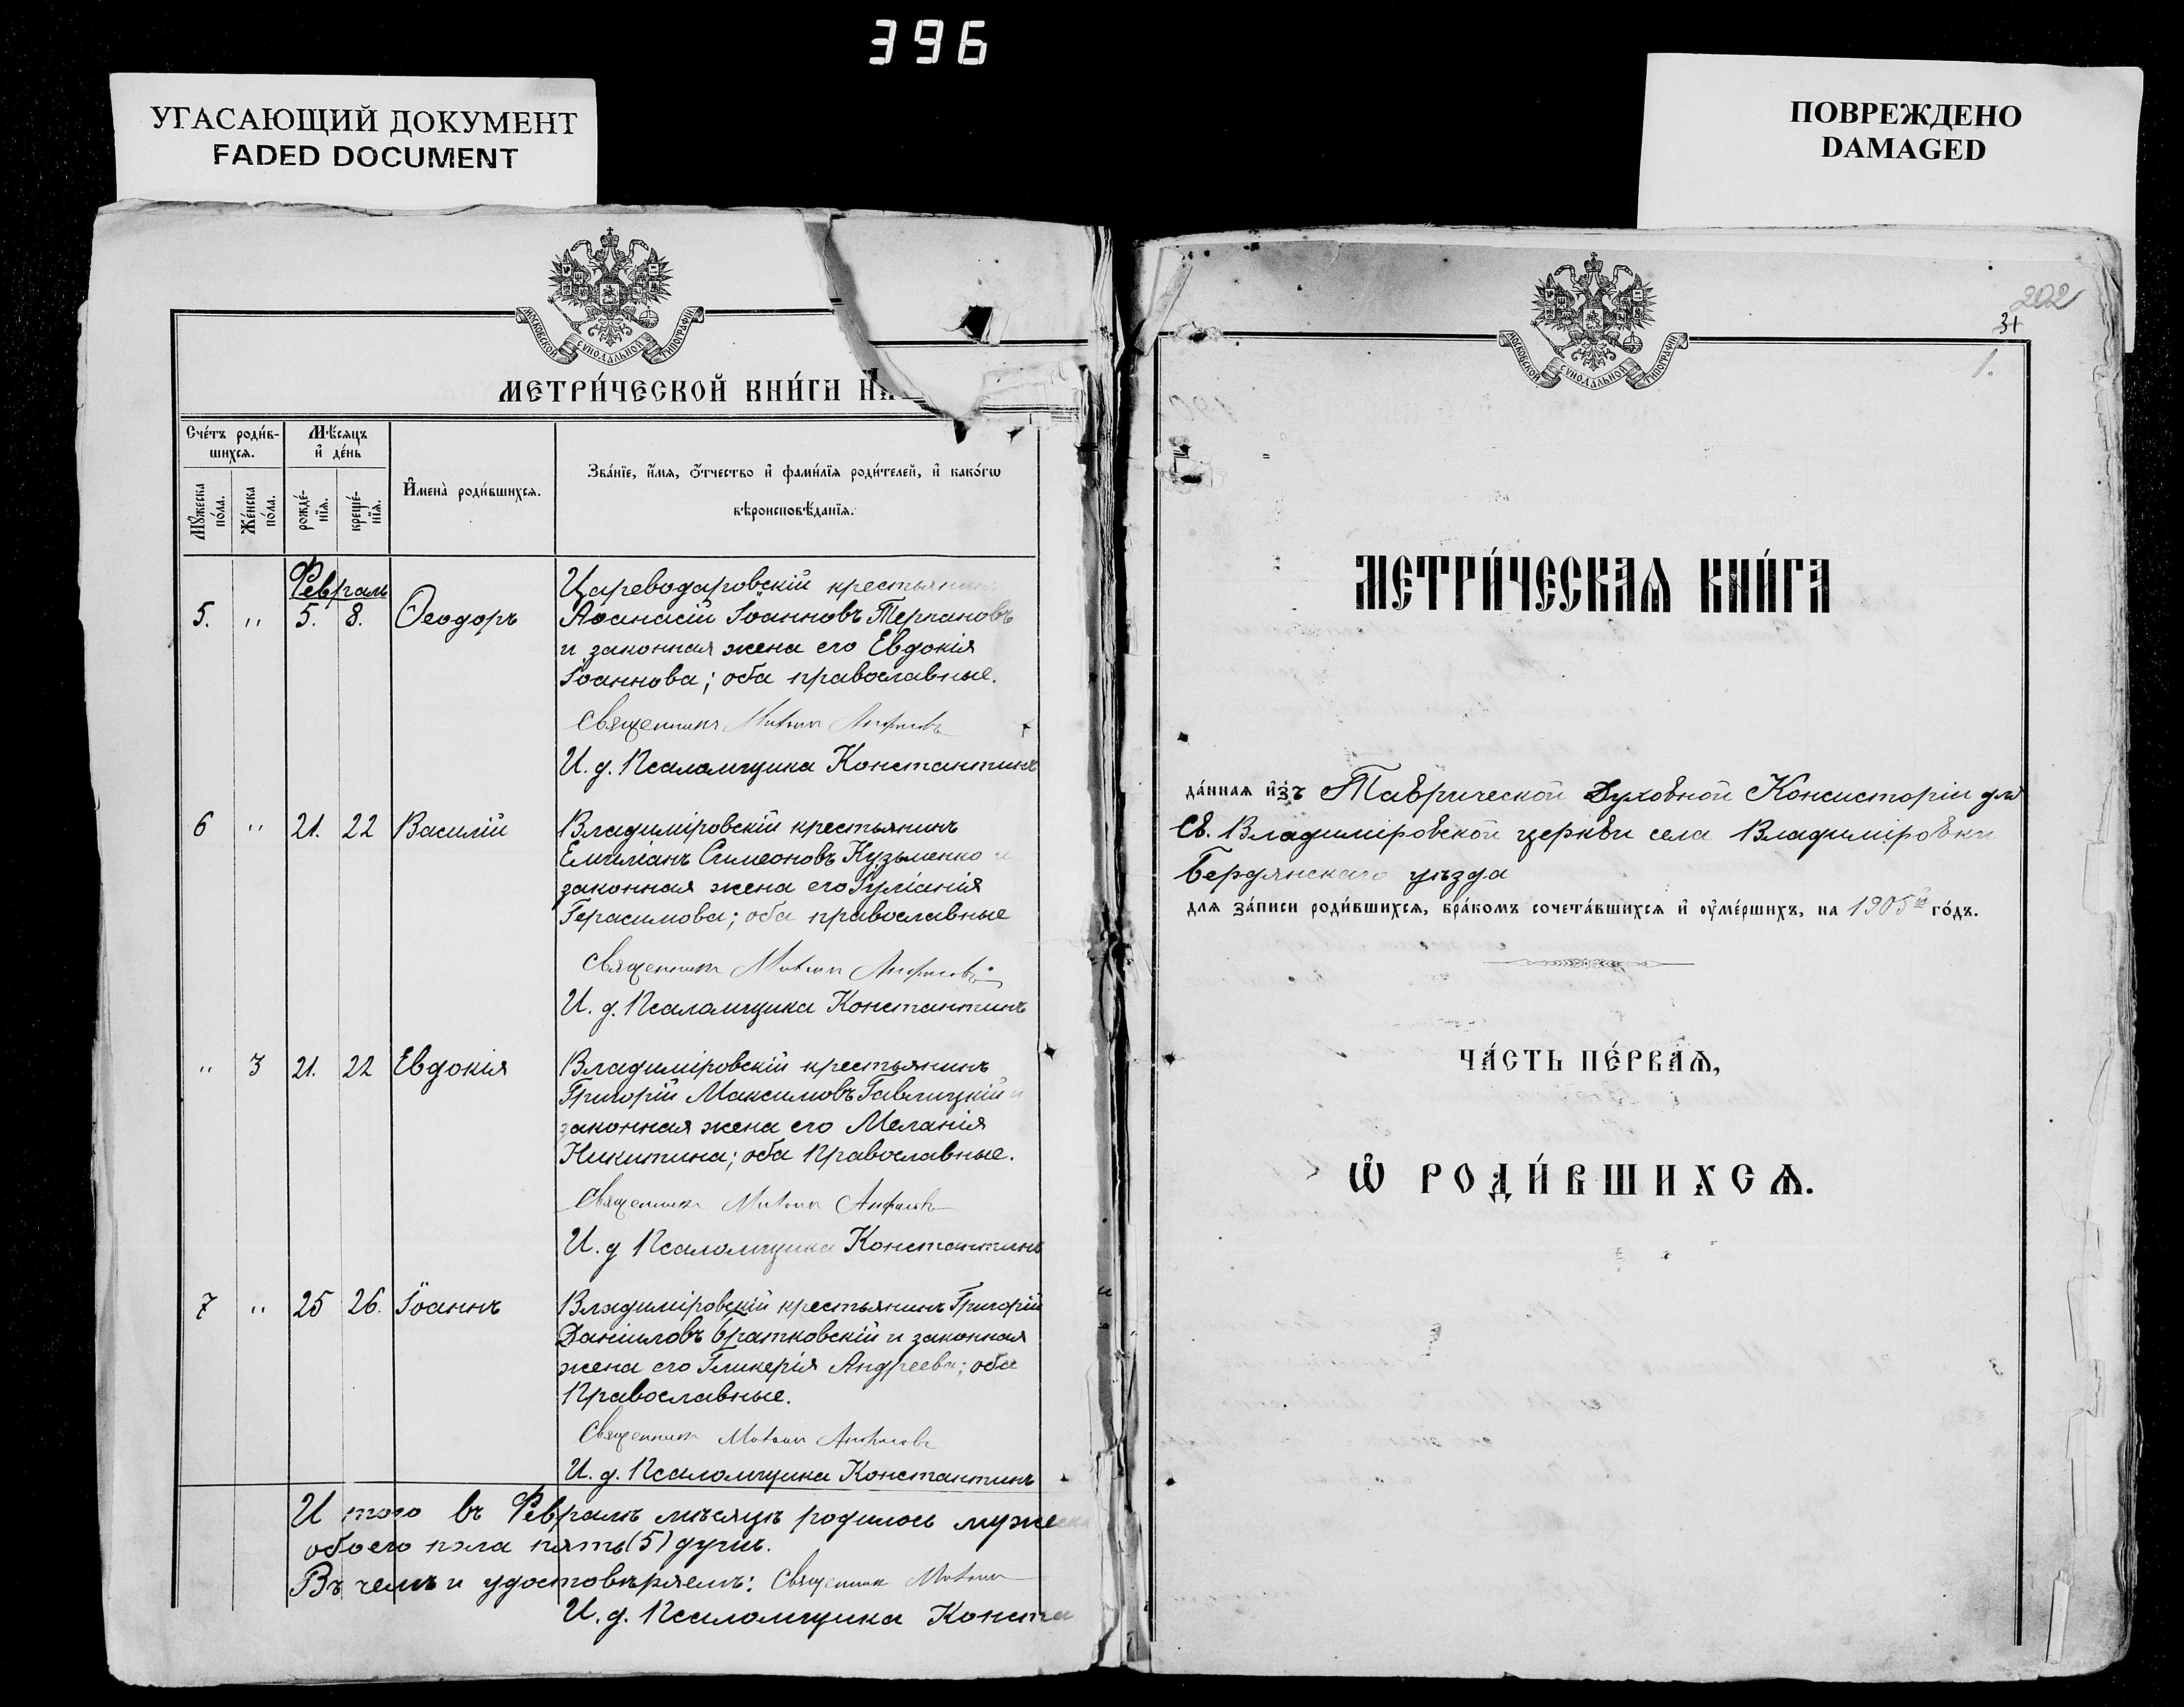 396
УГАСАЮЩИЙ ДОКУМЕНТ
FADED DOCUMENT
ПОВРЕЖДЕНО
DAMAGED
МОСКОВСКОЙ СѴНОДАЛЬНОЙ ТИПОГРАФІИ
МЕТРИ́ЧЕСКОЙ КНИ́ГИ
Сче́тъ роди́в-
шихсѧ.
Мѣ́сѧцъ
и҆ де́нь
И҆мена̀ роди́вшихсѧ.
Зва́нїе, и҆́мѧ, ѻ҆́тчество и҆ фами́лїѧ роди́телей, и҆ како́гѡ
вѣроисповѣ́данїѧ.
Мꙋ́жеска по́ла.
Же́нска по́ла.
рожде́-
нїѧ.
креще́-
нїѧ.
Февраль
5. " 5. 8. Ѳеодоръ
Цареводаровскій крестьянинъ
Аѳанасій Іоанновъ Терпановъ
и законная жена его Евдокія
Іоаннова; оба православные.
Священникъ
И. д. Псаломщика Константинъ
6 " 21. 22 Василій
Владиміровскій крестьянинъ
Емиліанъ Симеоновъ Кузьменко и
законная жена его Іуліанія
Герасимова; оба православные
Священникъ
И. д. Псаломщика Константинъ
" 3 21. 22 Евдокія
Владиміровскій крестьянинъ
Григорій Максимовъ Гавлицкій и
законная жена его Меланія
Никитина; оба православные.
Священникъ
И. д Псаломщика Константинъ
7 " 25 26. Іоаннъ
Владиміровскій крестьянинъ Григорій
Даніиловъ Братковскій и законная
жена его Гликерія Андреева; оба
православные.
Священникъ
И. д. Псаломщика Константинъ
И того въ Февралѣ мѣсяцѣ родилось мужеска
обоего пола пять (5) душъ.
Въ чемъ и удостовѣряемъ: Священникъ
И. д. Псаломщика Конста
МОСКОВСКОЙ СѴНОДАЛЬНОЙ ТИПОГРАФІИ
202
31
1.
МЕТРИ́ЧЕСКАѦ КНИ́ГА
да́ннаѧ и҆зъ Таврической Духовной Консисторіи для
Св. Владиміровской церкви села Владиміровки
Бердянскаго уѣзда
для за́писи роди́вшихсѧ, бра́комъ сочета́вшихсѧ и҆ оу҆ме́ршихъ, на 1905й го́дъ.
ЧА́СТЬ ПЕ́РВАѦ,
Ѡ҆ РОДИ́ВШИХСѦ.